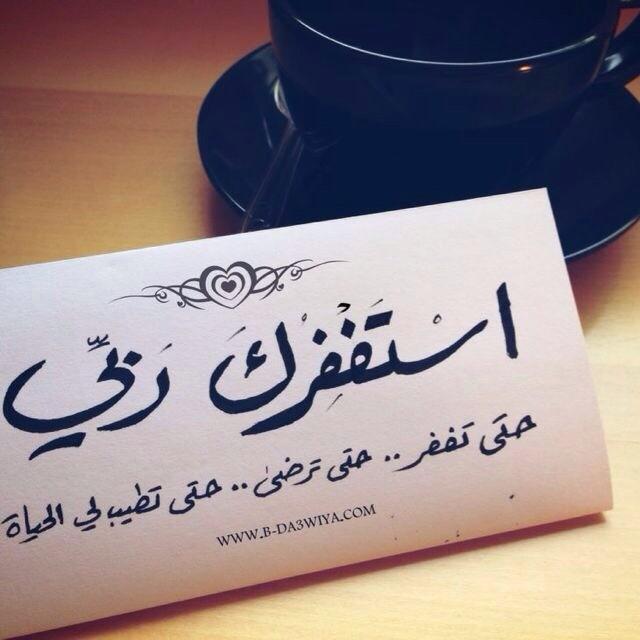 استغفرك ربي
حتى تغفر .. حتى ترضى .. حتى تطيب لي الحياة
WWW.B-DA3WIYA.COM